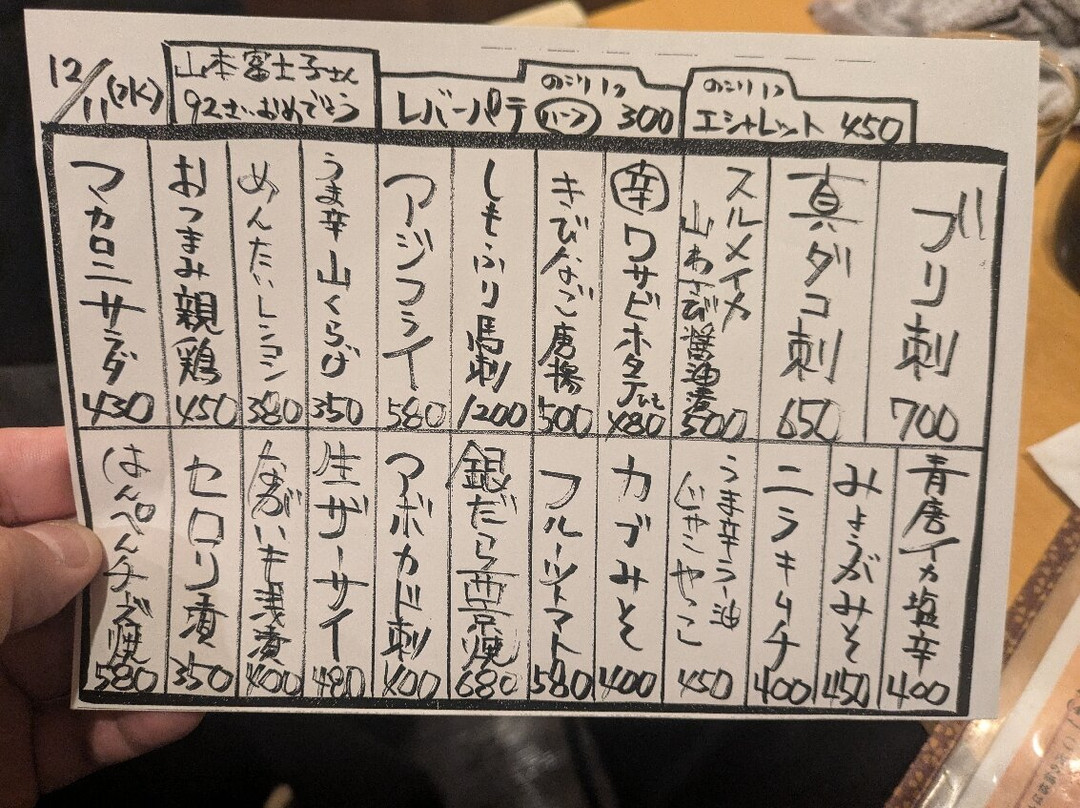 12/11(水)
山本富士子さん
92才おめでとう
のこり1つ
レバーパテ ハーフ 300
のこり1つ
エシャレット 450
ブリ刺 700
真ダコ刺 650
スルメイカ
山わさび醤油漬 500
辛 ワサビホタテ 480
きびなご唐揚 500
しもふり馬刺 1200
アジフライ 580
うま辛山くらげ 350
めんたいレンコン 380
おつまみ親鶏 450
マカロニサラダ 430
青唐イカ塩辛 400
みょうがみそ 450
ニラキムチ 400
うま辛ラー油
じゃこやっこ 450
カブみそ 400
フルーツトマト 580
銀だら西京焼 680
アボカド刺 400
生ザーサイ 480
ながいも浅漬 400
セロリ漬 350
はんぺんチーズ焼 580